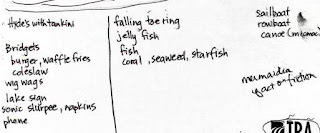 Hyde's with tankini
Bridgets
burger, waffle fries
coleslaw
wig wags
lake sign
sonic slurpee, napkins
phone
falling toe ring
jelly fish
fish
coral, seaweed, starfish
sailboat
rowboat
canoe (micmac)
mermaidia
fact or fiction
IRA